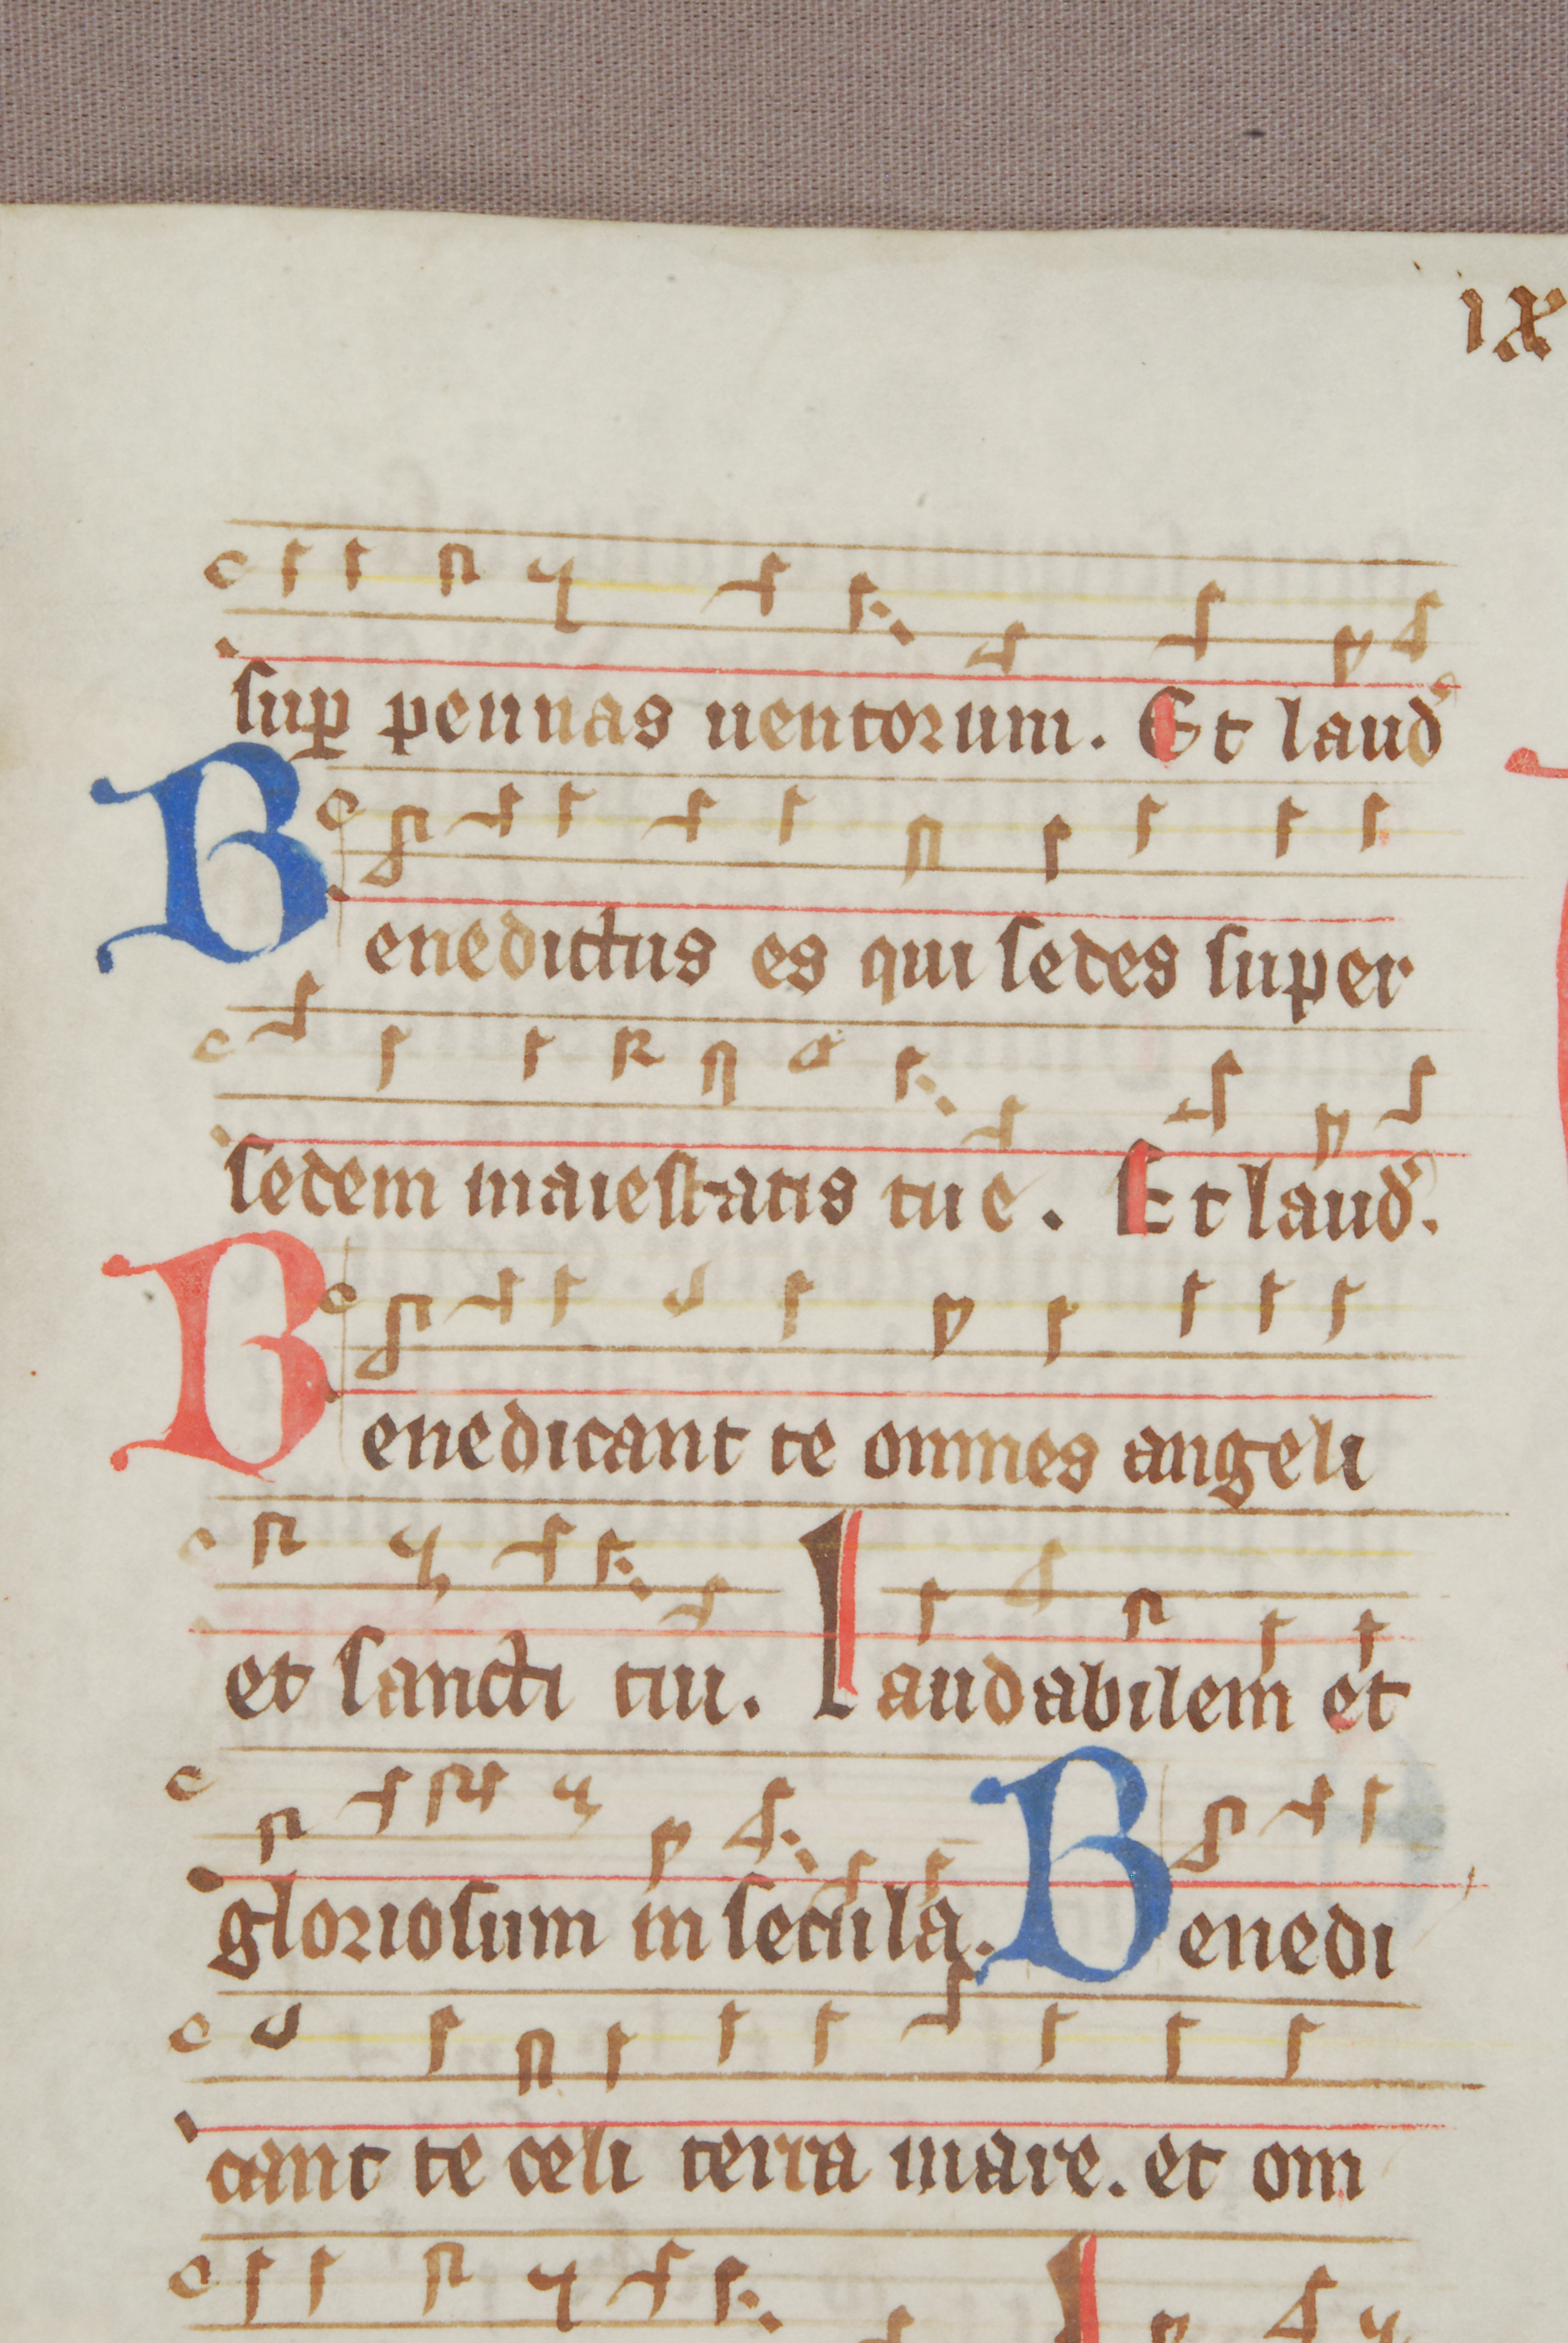 ıx
sup̱ pennas uentorum. Et laud᾽
Benedictus es qui sedes super
sedem maiestatis tue. Et laud᾽.
Benedicant te omnes angeli
et sancti tui. Laudabilem et
gloriosum in secula. Benedi
cant te celi terra mare. et om